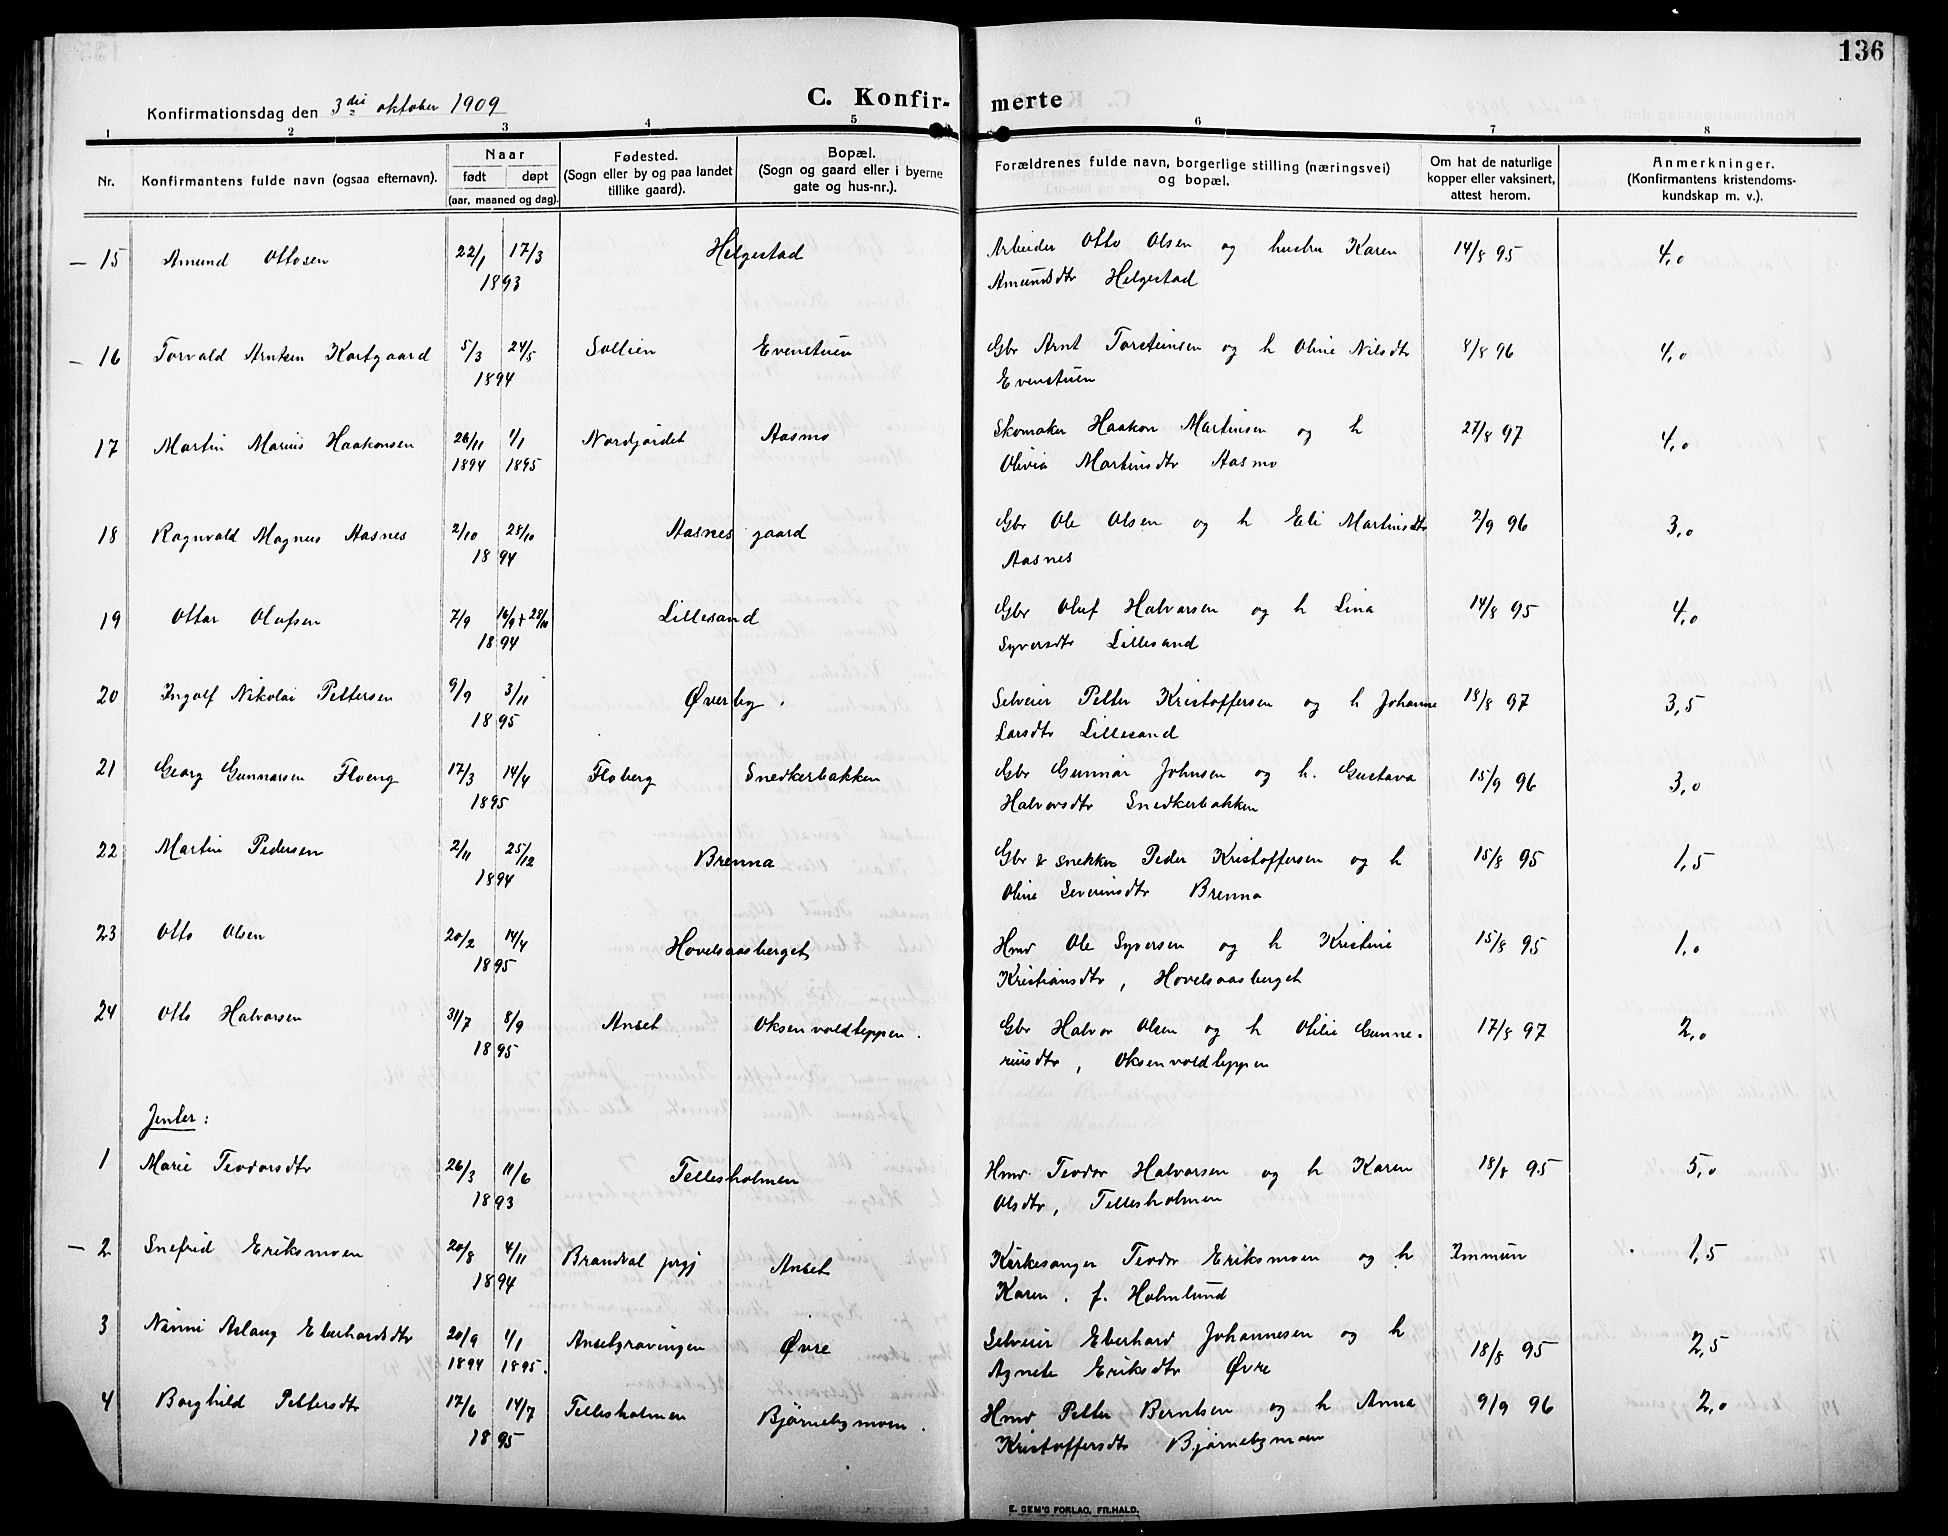 136
C. Konfir- merte
Konfirmationsdag den 3die oktober 1909
1 2 3 4 5 6 7 8
Nr. Konfirmantens fulde navn (ogsaa efternavn). Naar født døpt (aar, maaned og dag). Fødested. (Sogn eller by og paa landet tillike gaard). Bopæl. (Sogn og gaard eller i byerne gate og hus-nr.). Forældrenes fulde navn, borgerlige stilling (næringsvei) og bopæl. Om hat de naturlige kopper eller vaksinert, attest herom. Anmerkninger. (Konfirmantens kristendoms- kundskap m. v.).
– 15 Amund Ottosen 22/1 17/3 Helgestad Arbeider Otto Olsen og hustru Karen 14/8 95 4,0
1893 Amundsdtr Helgestad
– 16 Torvald Arntsen Kortgaard 5/3 24/5 Sollien Evenstuen Gbr Arnt Torsteinsen og h Oline Nilsdtr 8/8 96 4,0
1894 Evenstuen
17 Martin Marius Haakonsen 26/11 1/1 Nordjordet Aasmo Skomaker Haakon Martinsen og h 27/8 97 4,0
1894 1895 Olivia Martinsdtr Aasmo
18 Ragnvald Magnus Aasnes 2/10 28/10 Aasnes gaard Gbr Ole Olsen og h Eli Martinsdtr 2/9 96 3,0
1894 Aasnes
19 Ottar Olufsen 7/9 16/9 + 28/10 Lillesand Gbr Oluf Halvorsen og h Lina 14/8 95 4,0
1894 Syversdtr Lillesand
20 Ingolf Nikolai Pettersen 9/9 3/11 Øverby . Selveier Petter Kristoffersen og h Johanne 18/8 97 3,5
1895 Larsdtr Lillesand
21 Georg Gunnarsen Floeng 17/3 14/4 Floberg Snedkerbakken Gbr Gunnar Johnsen og h. Gustava 15/9 96 3,0
1895 Halvorsdtr Snedkerbakken
22 Martin Pedersen 2/11 25/12 Brenna Gbr & snekker Peder Kristoffersen og h 15/8 95 1,5
1894 Oline Severinsdtr Brenna
23 Otto Olsen 20/2 14/4 Hovelsaasberget Hmd Ole Syversen og h Kristine 15/8 95 1,0
1895 Kristiansdtr , Hovelsaasberget
24 Otto Halvorsen 31/7 8/9 Anset Oksenvoldteppen . Gbr Halvor Olsen og h Otilie Gunne- 17/8 97 2,0
1895 riusdtr , Oksenvoldteppen
Jenter :
1 Marie Teodorsdtr 26/3 11/6 Tellesholmen Hmd. Teodor Halvorsen og h Karen 18/8 95 5,0
1893 Olsdtr , Tellesholmen
– 2 Snefrid Eriksmoen 20/8 4/11 Brandval prgj Anset Kirkesanger Teodor Eriksmoen og h Immun 1,5
1894 Karen , f. Holmlund
3 Nanni Aslaug Eberhardsdtr 20/9 1/1 Ansetgravingen Øvre Selveier Eberhard Johannesen og h 18/8 95 2,5
1894 1895. Agnete Eriksdtr Øvre
4 Borghild Pettersdtr 17/6 14/7 Tellesholmen Bjørnebymoen . Hmd Petter Berntsen og h Anna 9/9 96 2,0
1895 Kristoffersdtr Bjørnebymoen
E. SEM'S FORLAG, FR.HALD.